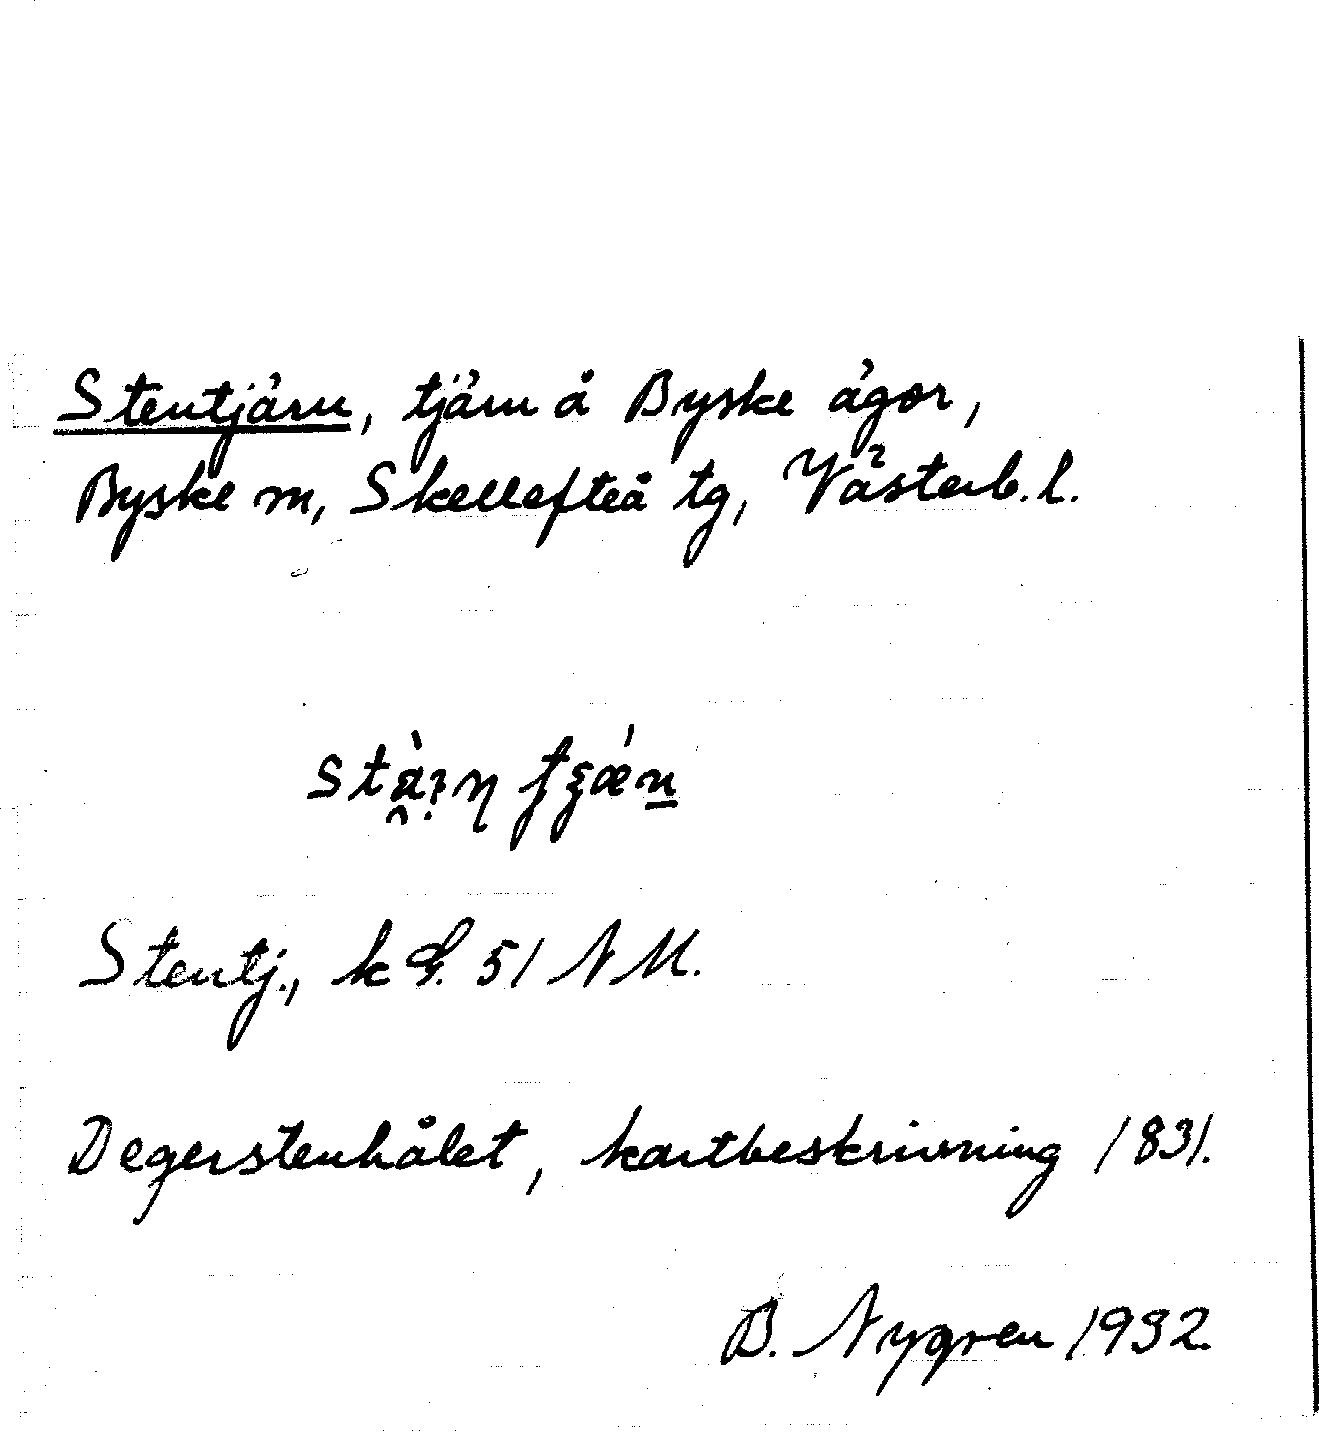 Stentjärn, tjärn å Byske ägor,
Byske m, Skellefteå tg, Västerb. l.
Stentj., k G. 51 N M.
Degerstenhålet, kartbeskrivning 1831.
B. Nygren 1932.